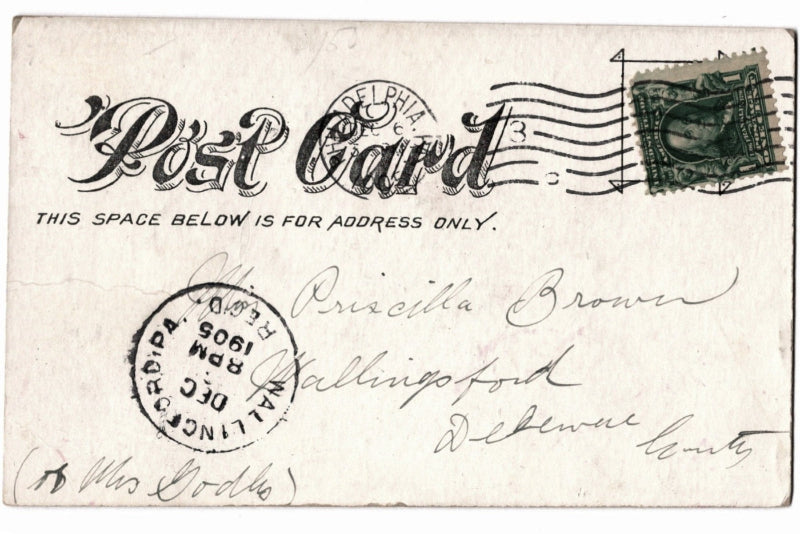 Post Card
PHILADELPHIA, PA
6
3
THIS SPACE BELOW IS FOR ADDRESS ONLY.
WALLINGFORD, PA.
DEC
8 PM
1905
REC'D.
Mrs Priscilla Brown
Wallingford
Delewae County
Mrs